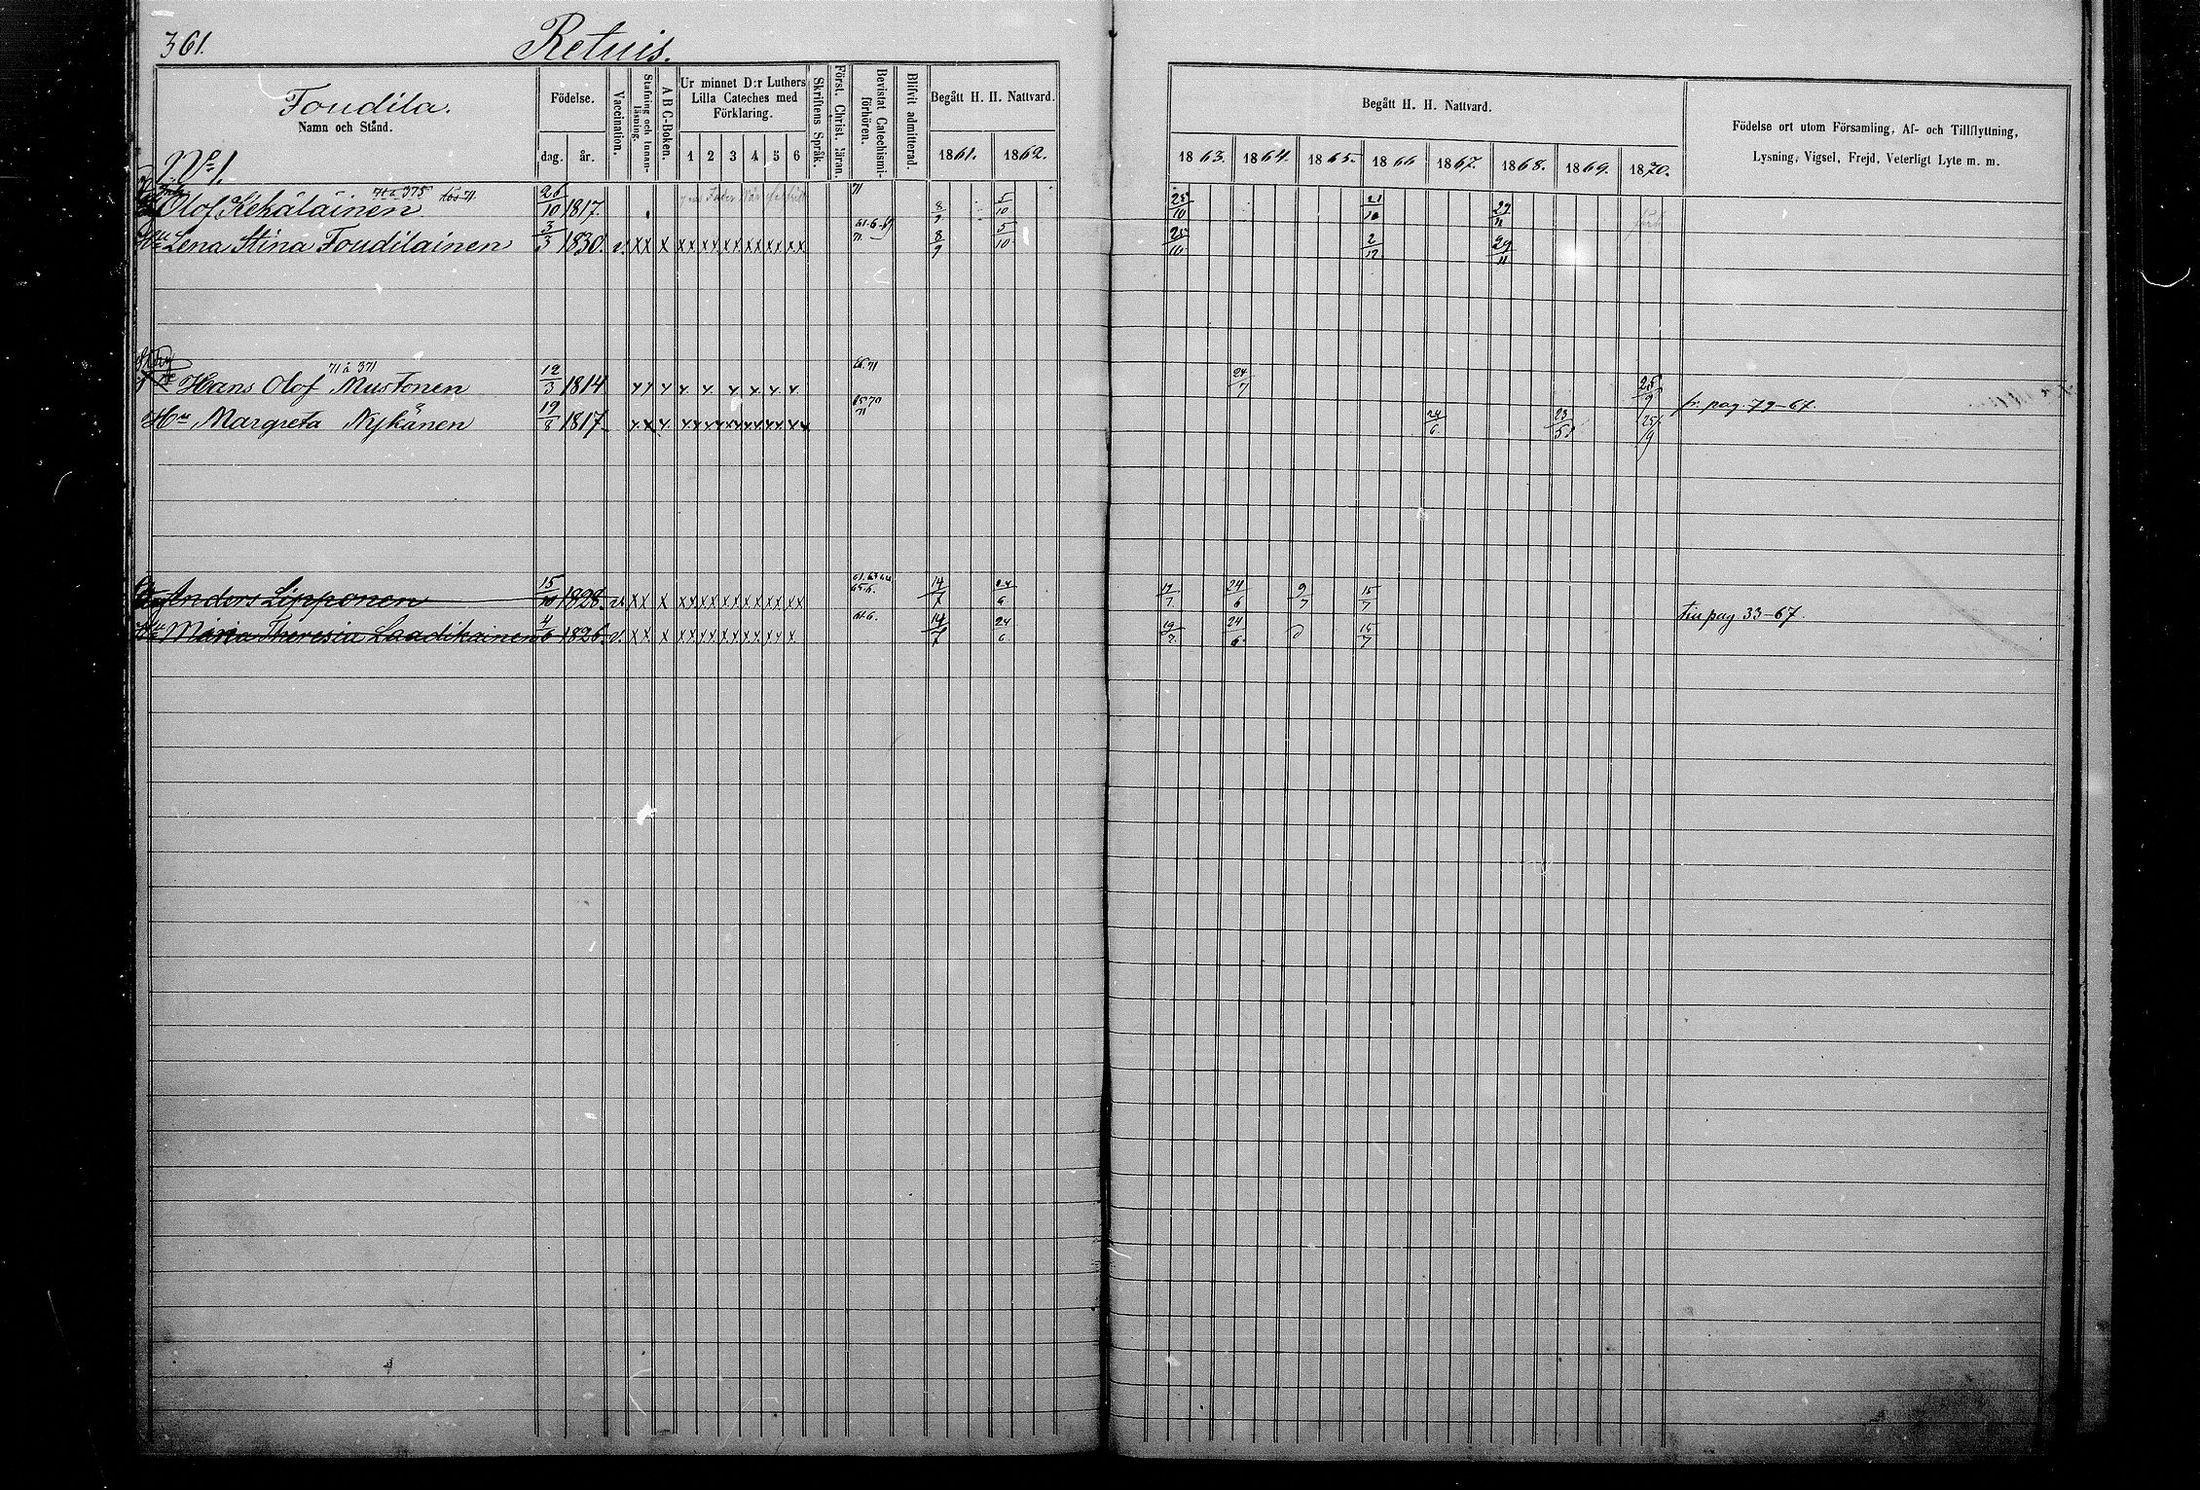 361.
Retuis.
Toudila.
Namn och Stånd.
Födelse.
dag. år.
Vaccination.
Stafning och Innan-läsning.
A B C-Boken.
Ur minnet D:r Luthers Lilla Cateches med Förklaring.
1 2 3 4 5 6
Skriftens Språk.
Först. Christ. läran.
Bevistat Catechismi-förhören.
Blifvit admitterad.
Begått H. H. Nattvard.
1861. 1862.
Begått H. H. Nattvard.
1863. 1864. 1865. 1866 1867. 1868. 1869. 1870.
Födelse ort utom Församling, Af- och Tillflyttning,
Lysning, Vigsel, Frejd, Veterligt Lyte m. m.
No 1.
71 à 375
Olof Kekäläinen 26/10 1817. 71 8/9 5/10 25/10 21/10 29/11
Hu Lena Stina Toudilainen 3/3 1830. v. xx x xx xx xx xx xx xx 71 8/9 5/10 25/10 2/12 29/11
71 à 371
Hans Olof Mustonen 12/3 1814 x x x x x x x x x 66.71 24/7 25/9 fr. pag. 79-67.
Hu Margreta Nykänen 19/8 1817. x x x xx xx xx xx xx xx 65 70 71 24/6 23/5 25/9
Anders Lipponen 15/10 1828. v. xx x xx xx xx xx xx xx 14/7 24/6 17/7 24/6 9/7 15/7 till pag 33-67.
Hu Maria Theresia Laadikainen 4/6 1826. v. xx x xx xx xx xx xx x 61-6. 14/7 24/6 19/7 24/6 15/7